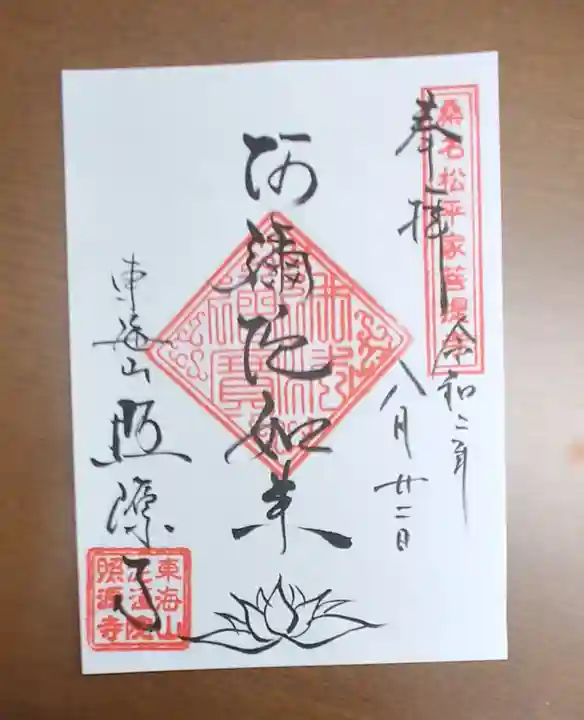 奉拝
桑名松平家菩提寺
令和二年
八月廿二日
阿彌陀如来
東海山
照源寺
東海山
照源寺